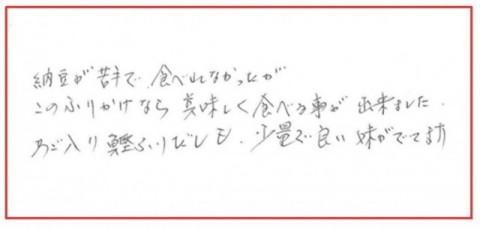 納豆が苦手で、食べれなかったが
このふりかけなら美味しく食べる事が出来ました.
あご入り鰹ふりだしも、少量で良い味がでてます